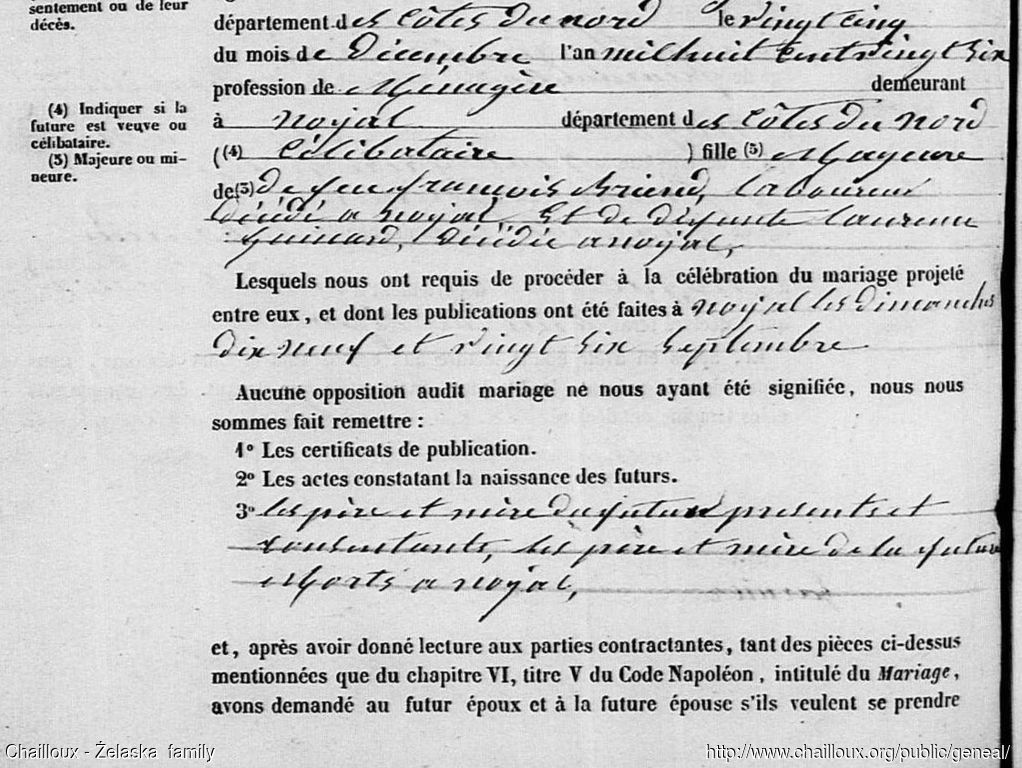 sentement ou de leur
décès.
(4) Indiquer si la
future est veuve ou
célibataire.
(5) Majeure ou mi-
neure.
département des Côtes du nord le vingt cinq
du mois de Décembre l'an mil huit cent vingt six
profession de Ménagère demeurant
à noyal département des Côtes du nord
((4) Célibataire ) fille (5) Mageure
de(5) de feu françois Briend, laboureur
Décédé a noyal, Et de défunte laurence
Guinard, Décédée a noyal,
Lesquels nous ont requis de procéder à la célébration du mariage projeté
entre eux, et dont les publications ont été faites à noyal les dimanches
dix neuf et vingt six Septembre
Aucune opposition audit mariage ne nous ayant été signifiée, nous nous
sommes fait remettre :
1º Les certificats de publication.
2º Les actes constatant la naissance des futurs.
3º les père et mère du futur presents et
consentants, les père et mère de la future
Morts a noyal,
et, après avoir donné lecture aux parties contractantes, tant des pièces ci-dessus
mentionnées que du chapitre VI, titre V du Code Napoléon, intitulé du Mariage,
avons demandé au futur époux et à la future épouse s'ils veulent se prendre
Chailloux - Żelaska family
http://www.chailloux.org/public/geneal/